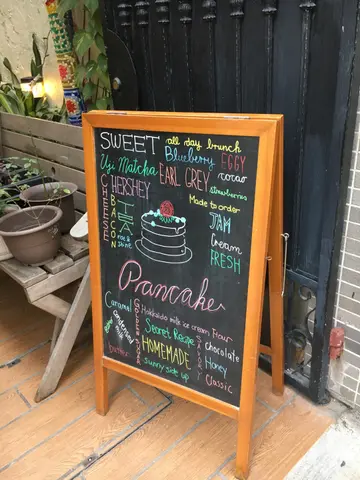 SWEET all day brunch
Blueberry EGGY
Uji Matcha EARL GREY cocoa
HERSHEY strawberries
CHEESE
BACON
Made to order
JAM
Cream
FRESH
Pancake
Caramel Hokkaido milk ice cream Flour
condensed milk
Secret Recipe
HOMEMADE
sunny side up
butter
SAVORY
chocolate
Honey
Classic